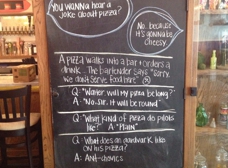 You wanna hear a
joke about pizza?
No. because
it's gonna be
cheesy
A pizza walks into a bar + orders a
drink. The bartender says "Sorry,
we don't serve food here"
Q: "Waiter will my pizza be long?"
A: "No. sir. It will be round"
Q: "What kind of pizza do pilots
like?" A: "Plain"
Q: What does an aardvark like
on his pizza?
A: Ant-chovies